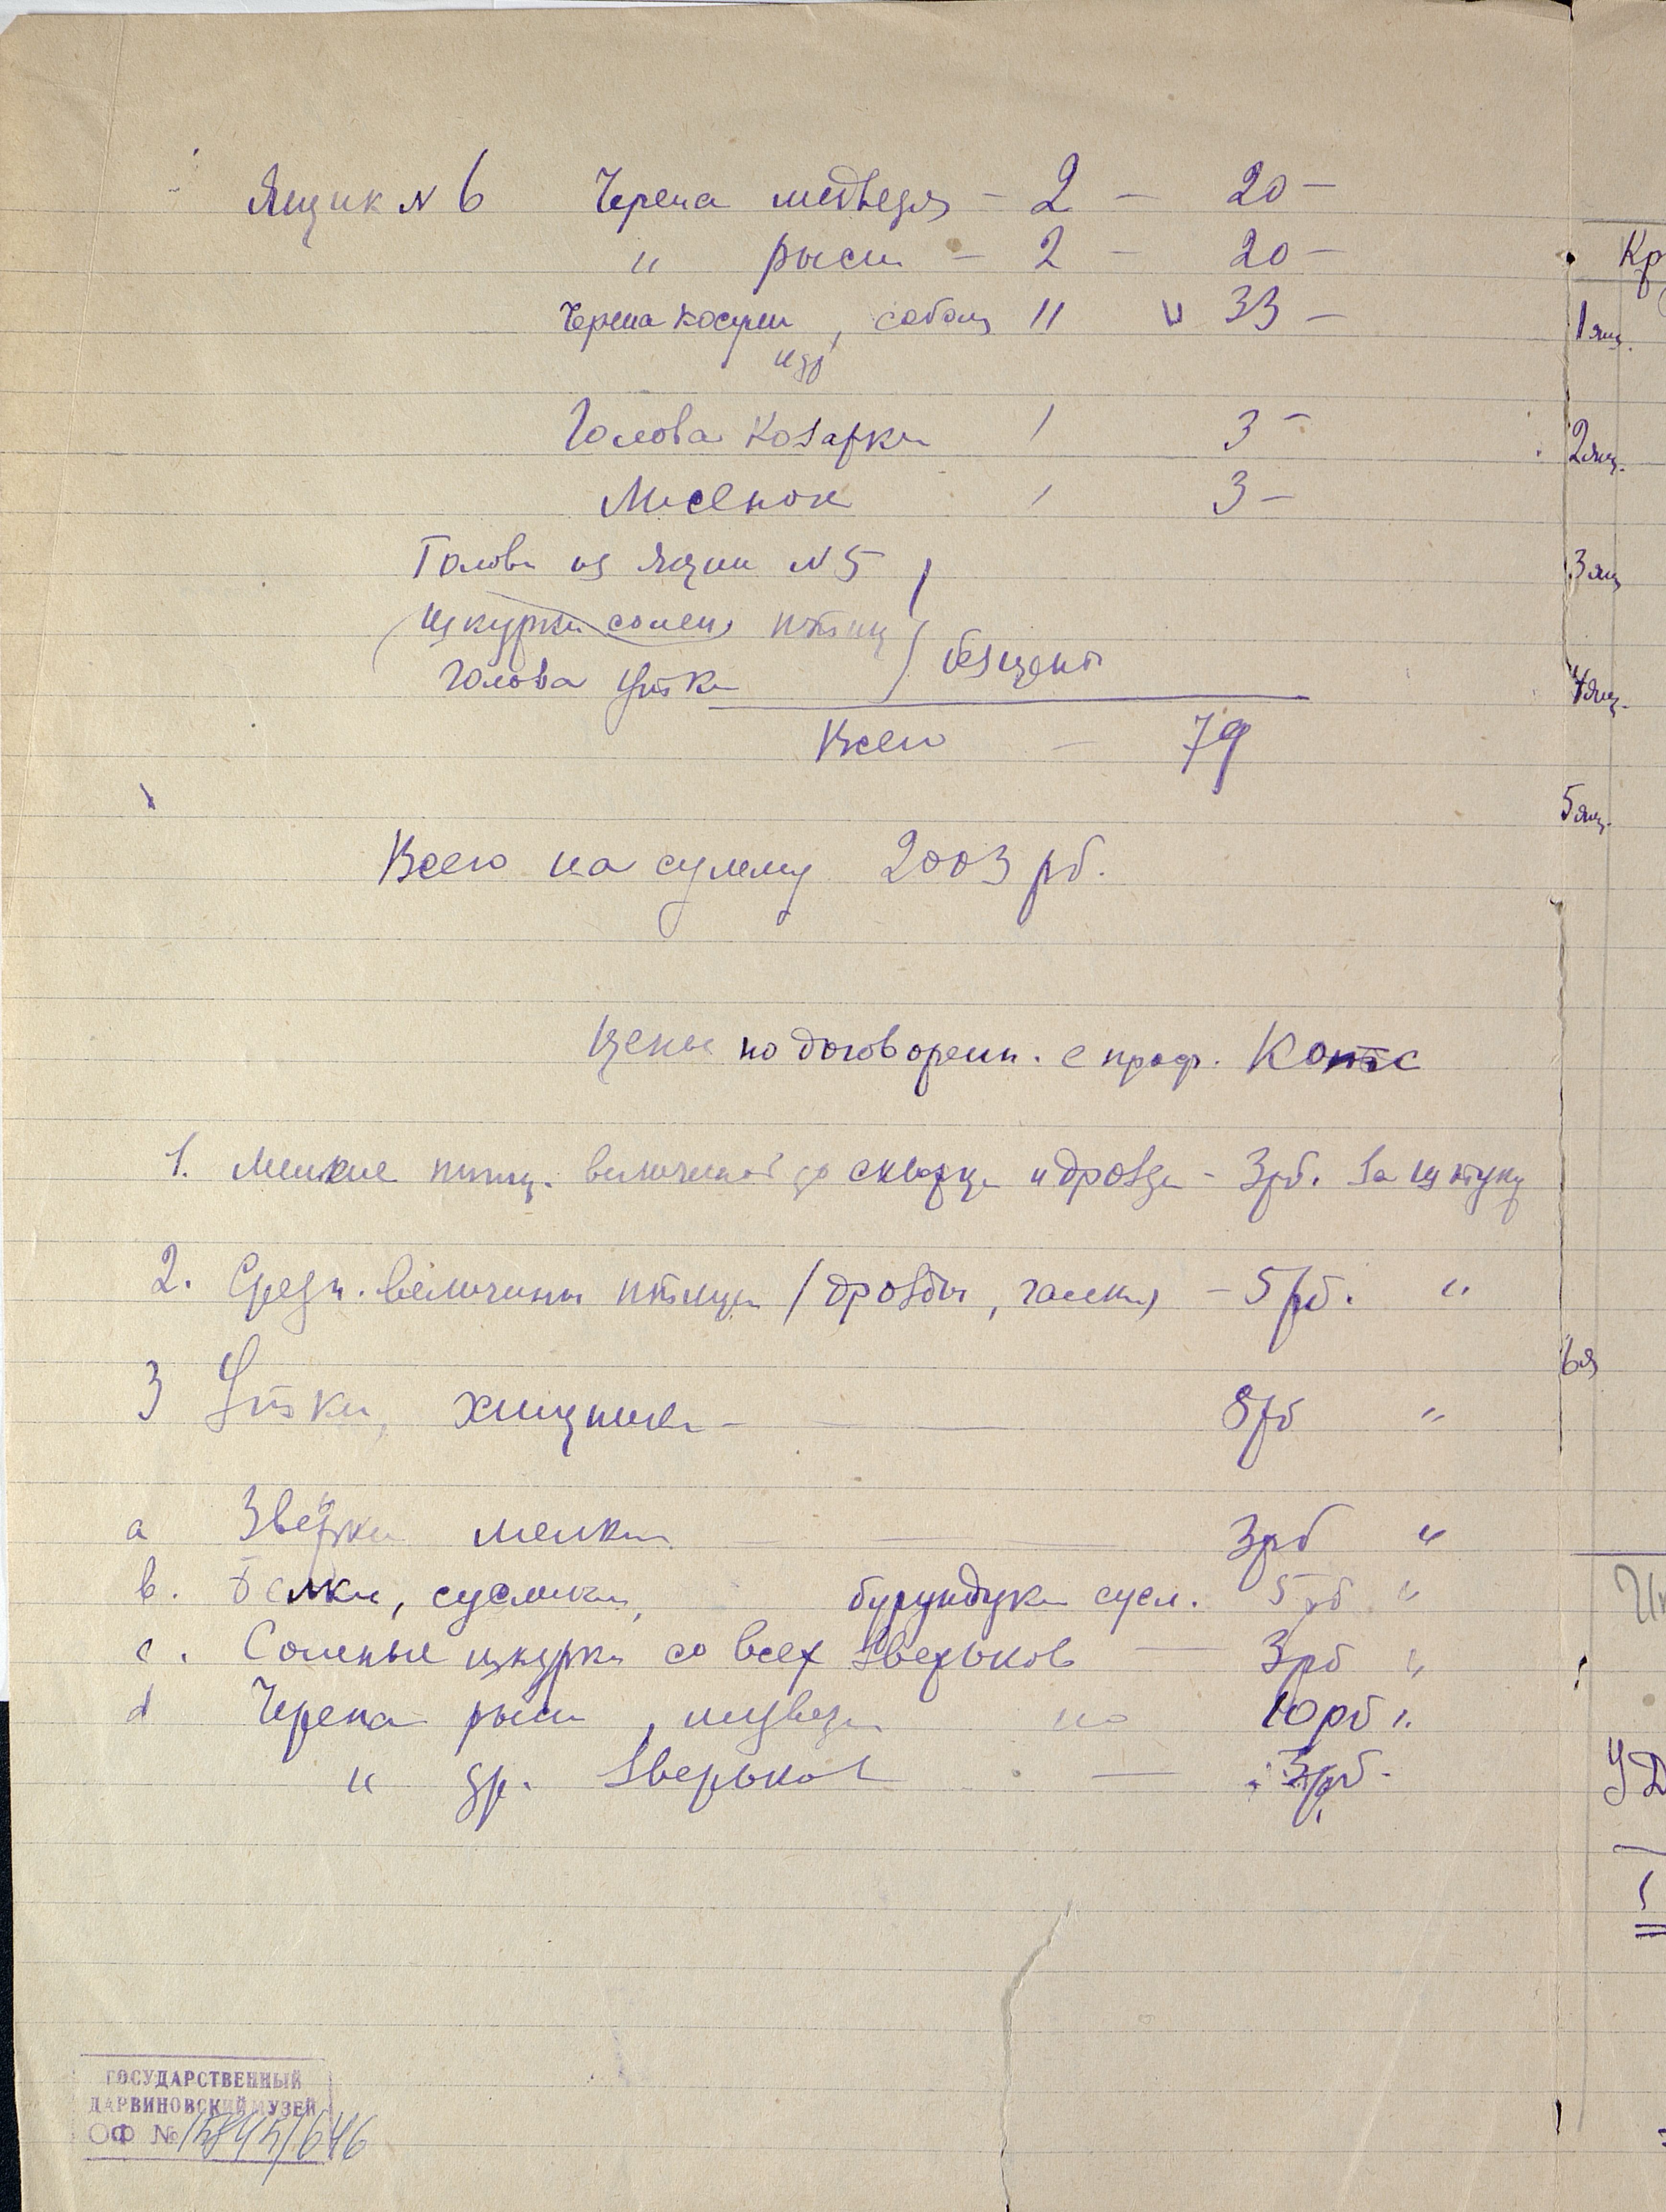 Ящик N 6 Черепа медведя – 2 – 20 –
" рыси – 2 – 20 –
Черепа косули, соболя 11 33 –
и др
Голова козарки 1 3 –
Лисенок 1 3 –
Головы из ящик N 5
Шкурки солен птиц
Голова утки
без цены
Всего – 79
Всего на сумму 2003 рб.
Цены по договорен. с проф. Котс
1. Мелкие птиц. величиной до скворца и дрозда – 3 рб. за штуку
2. Средн. величины птицы (дрозды, галки) – 5 рб. "
3 Утки, хищники – 8 рб "
a Зверки мелкие 3 рб "
b. Белки, суслики, бурундуки сусл. 5 рб "
c. Соленые шкурки со всех зверьков – 3 рб "
d Черепа рыси, медведя по 10 рб ".
" др. зверьков – 3 рб.
Кр
1 ящ.
2 ящ.
3 ящ
4 ящ.
5 ящ.
6 я
ГОСУДАРСТВЕННЫЙ
ДАРВИНОВСКИЙ МУЗЕЙ
ОФ № 15845/646